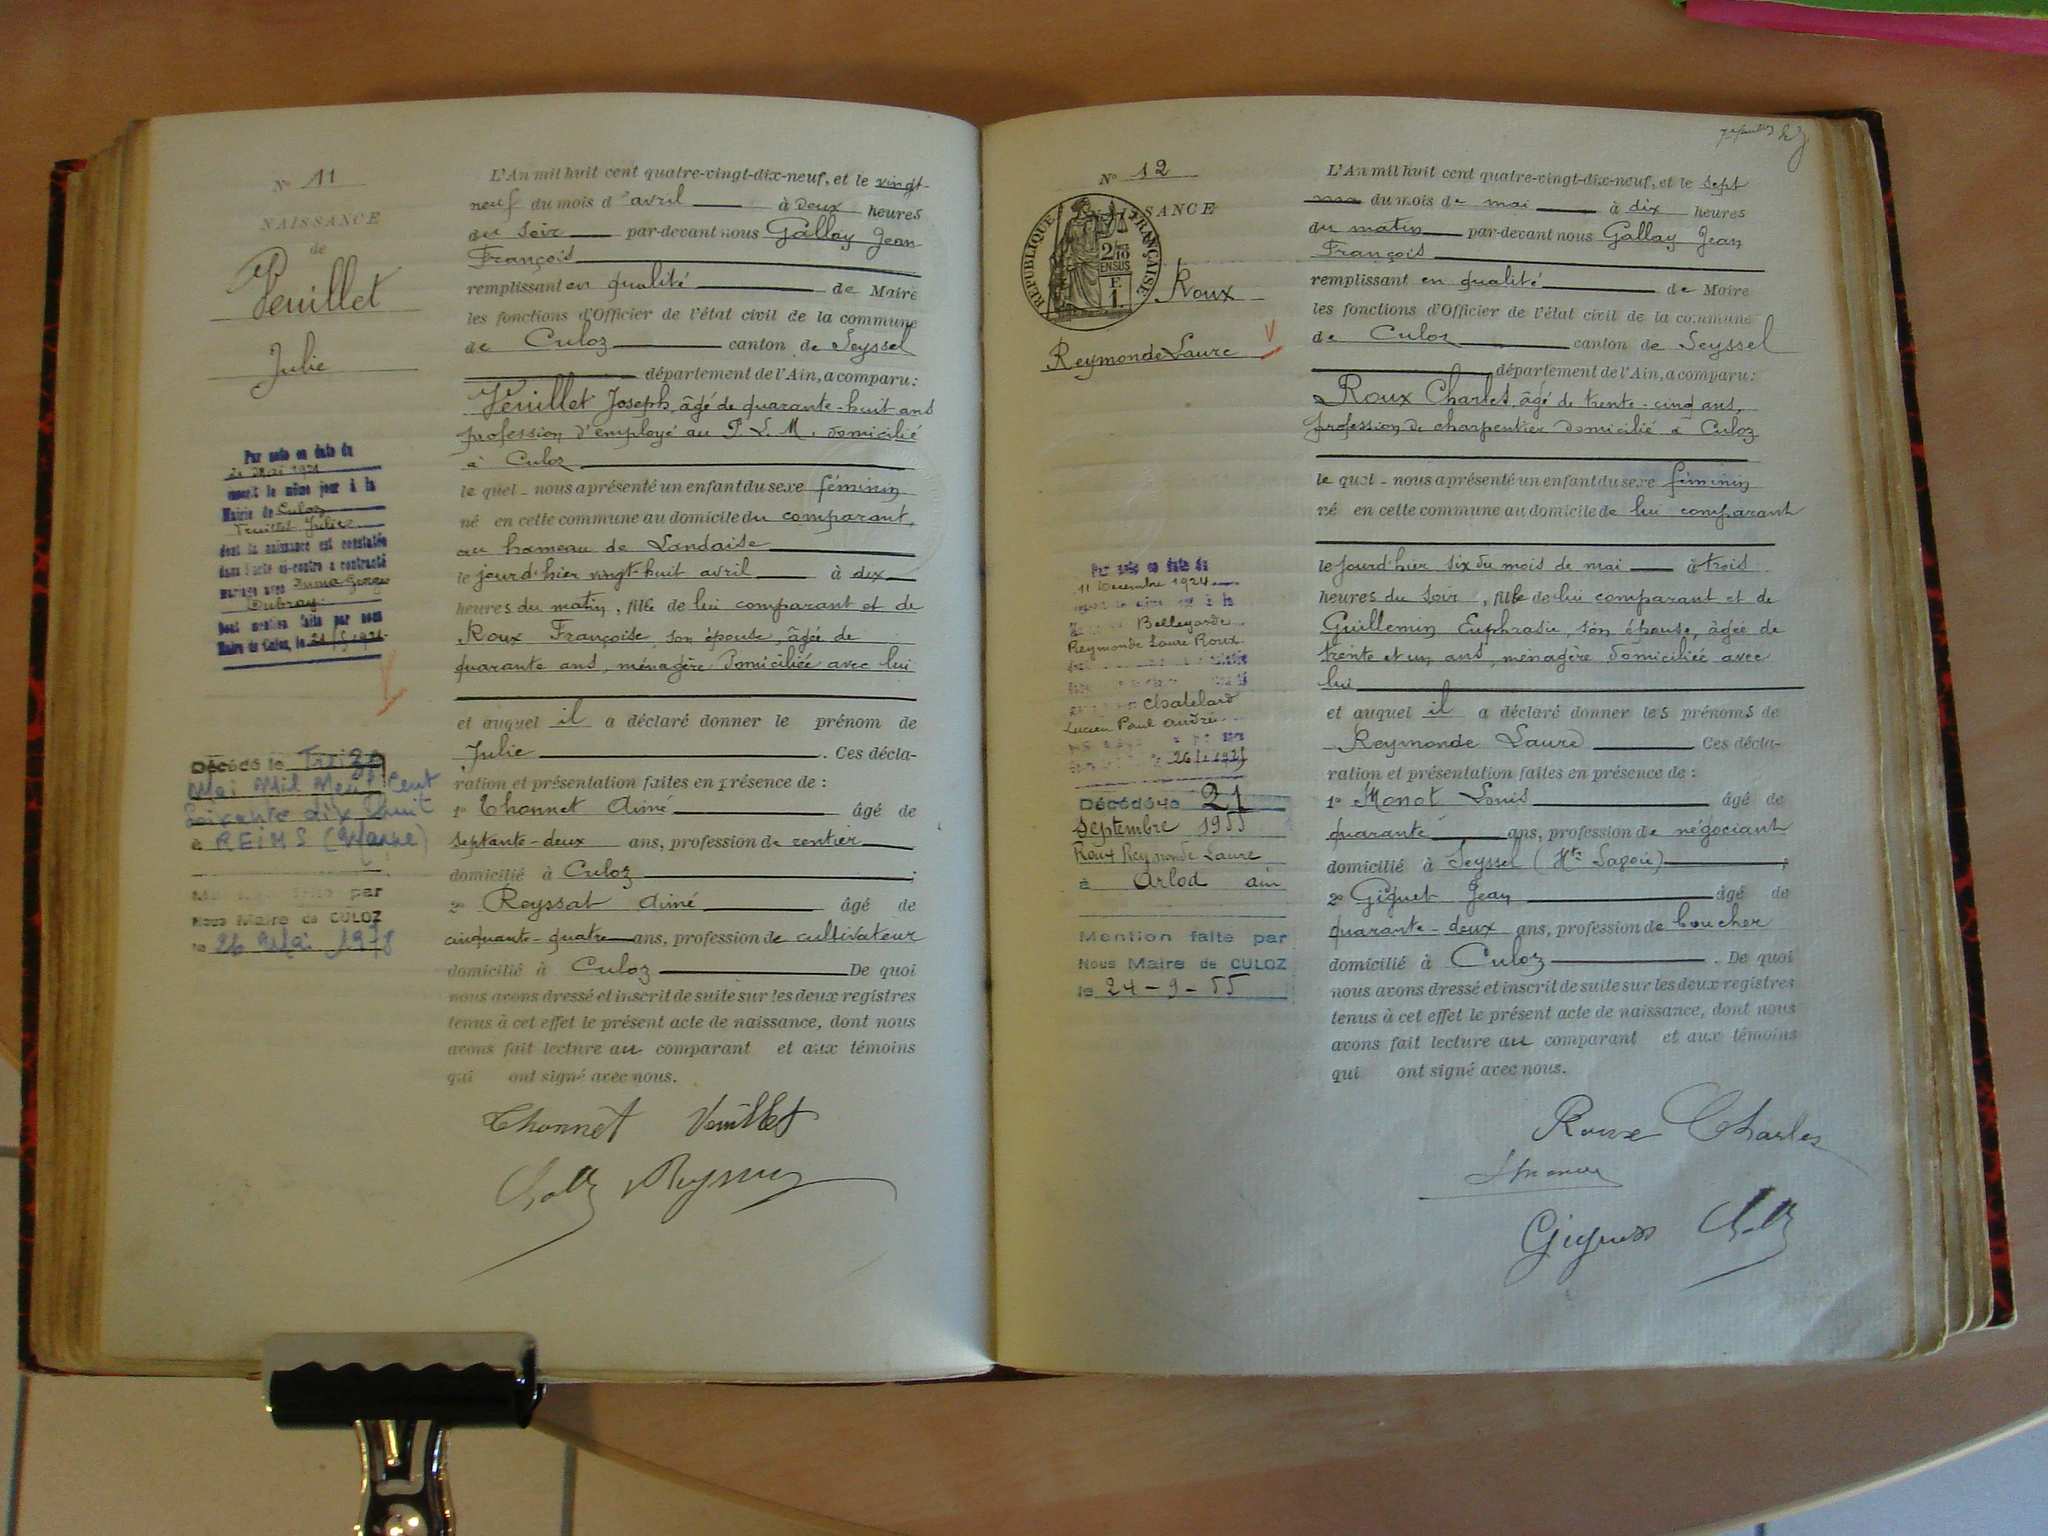 N° 11
NAISSANCE
de
Veuillet
Julie
Par note en date du
inscrit le même jour à la
Mairie de Culoz
Veuillet Julie
dont la naissance est constatée
dans l'acte ci-contre a contracté
mariage avec Georges
Dubray
Dont mention faite par nous
Maire de Culoz, le
Décédé le Treize
Mai Mil Neuf Cent
Soixante dix huit
à REIMS (Marne)
par
Nous Maire de CULOZ
le 26 Mai 1978
L'An mil huit cent quatre-vingt-dix-neuf, et le vingt-
neuf du mois d'avril à deux heures
du soir par-devant nous Gallay Jean
François
remplissant en qualité de Maire
les fonctions d'Officier de l'état civil de la commune
de Culoz canton de Seyssel
département de l'Ain, a comparu :
Veuillet Joseph, âgé de quarante-huit ans
profession d'employé au P. L. M. domicilié
à Culoz
le quel - nous a présenté un enfant du sexe féminin
né en cette commune au domicile du comparant,
au hameau de Landaise
le jourd'hier vingt-huit avril à dix
heures du matin, fille de lui comparant et de
Roux Françoise, son épouse, âgée de
quarante ans, ménagère domiciliée avec lui
et auquel il a déclaré donner le prénom de
Julie . Ces décla-
ration et présentation faites en présence de :
1° Thonnet Aimé âgé de
septante-deux ans, profession de rentier
domicilié à Culoz ;
2° Reyssat Aimé âgé de
cinquante-quatre ans, profession de cultivateur
domicilié à Culoz De quoi
nous avons dressé et inscrit de suite sur les deux registres
tenus à cet effet le présent acte de naissance, dont nous
avons fait lecture au comparant et aux témoins
qui ont signé avec nous.
Thonnet Veuillet
N° 12
RÉPUBLIQUE FRANÇAISE
2/10 EN SUS
E
1
Roux
Reymonde Laure
Par note en date du
11 Décembre 1924
Bellegarde
Reymonde Laure Roux
Chatelard
Lucien Paul André
Décédée le 21
Septembre 1955
Roux Reymonde Laure
à Arlod ain
Mention faite par
Nous Maire de CULOZ
le 24-9-55
L'An mil huit cent quatre-vingt-dix-neuf, et le sept
du mois de mai à dix heures
du matin par-devant nous Gallay Jean
François
remplissant en qualité de Maire
les fonctions d'Officier de l'état civil de la commune
de Culoz canton de Seyssel
département de l'Ain, a comparu :
Roux Charles, âgé de trente-cinq ans,
profession de charpentier domicilié à Culoz
le quel - nous a présenté un enfant du sexe féminin
né en cette commune au domicile de lui comparant
le jourd'hier six du mois de mai à trois
heures du soir, fille de lui comparant et de
Guillemin Euphrasie, son épouse, âgée de
trente et un ans, ménagère domiciliée avec
lui
et auquel il a déclaré donner les prénoms de
Reymonde Laure Ces décla-
ration et présentation faites en présence de :
1° Monot Louis âgé de
quarante ans, profession de négociant
domicilié à Seyssel (Hte Savoie) ;
2° Giguet Jean âgé de
quarante-deux ans, profession de boucher
domicilié à Culoz . De quoi
nous avons dressé et inscrit de suite sur les deux registres
tenus à cet effet le présent acte de naissance, dont nous
avons fait lecture au comparant et aux témoins
qui ont signé avec nous.
Roux Charles